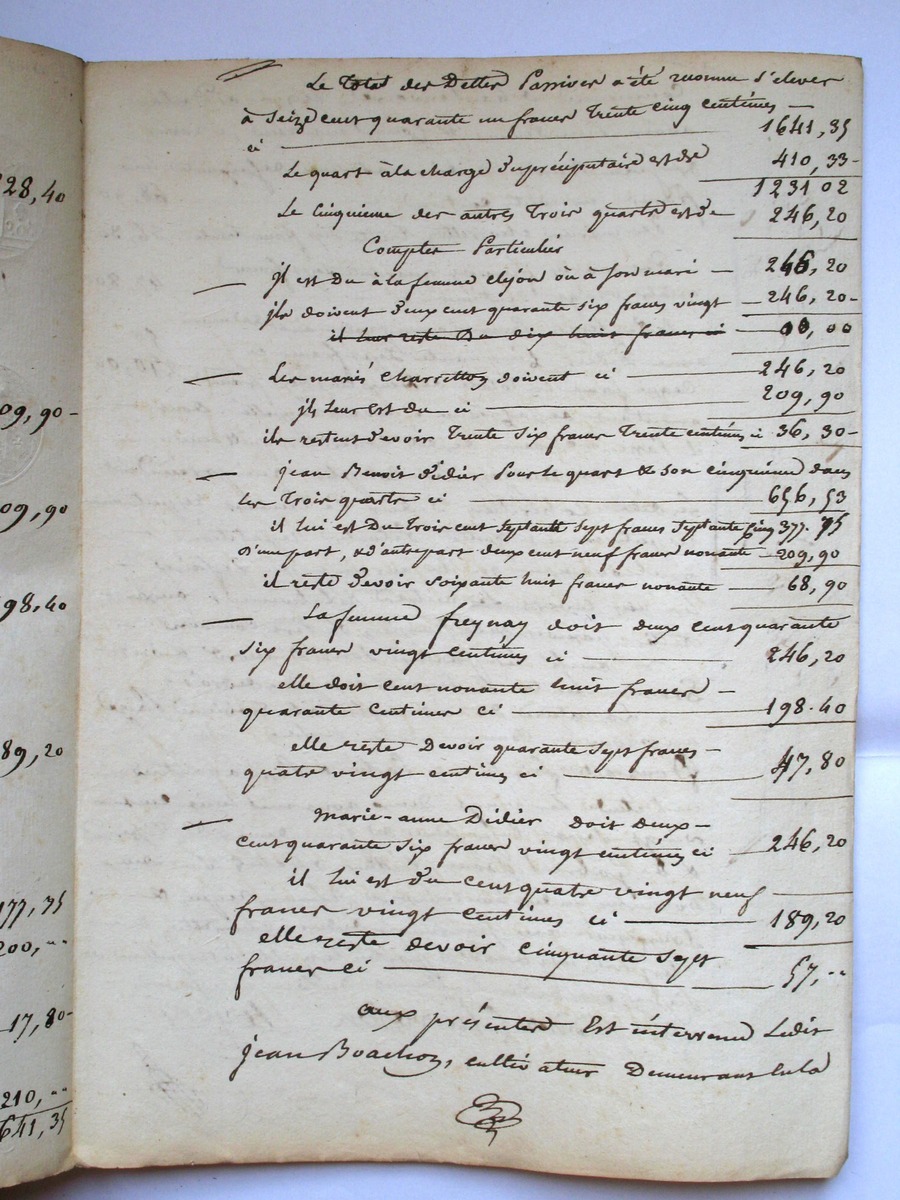 28,40
09,90-
09,90
98.40
89,20
177,75
200,--
17,80-
210,--
641,35
Le total des Dettes Passives a été reconnu s'elever
à Seize cent quarante un francs Trente cinq centimes —
ci — 1641,35
Le quart à la charge du préciputaire est de 410,33-
1231 02
Le Cinquieme des autres Trois quarts est de 246,20
Comptes Particulier
jl est Du à la femme Dejou où à son mari — 246,20
jls doivent Deux cent quarante six francs vingt — 246,20-
il leur reste Du dix huit francs ci — 00,00
Les mariés Charretton doivent ci — 246,20
jls leur est du ci — 209,90
ils restent Devoir Trente Six francs Trente centimes ci 36,30-
jean Benoit Didier Pour le quart & son cinquieme dans
les Trois quarts ci — 656,53
il lui est Du Trois cent septante sept francs septante cinq 377.75
D'une part, & d'autre part deux cent neuf francs nonante — 209,90
il reste Devoir soixante huit francs nonante — 68,90
La femme freynay doit deux cent quarante
six francs vingt centimes ci — 246,20
elle doit cent nonante huit francs —
quarante Centimes ci — 198.40
elle reste Devoir quarante sept francs —
quatre vingt centimes ci — 47,80
Marie-anne Didier doit deux —
cent quarante six francs vingt centimes ci — 246,20
il lui est Du cent quatre vingt neuf
francs vingt Centimes ci — 189,20
elle reste devoir Cinquante sept
francs ci — 57,--
aux présentes Est intervenu Ledit
jean Boachon, cultivateur Demeurant en la